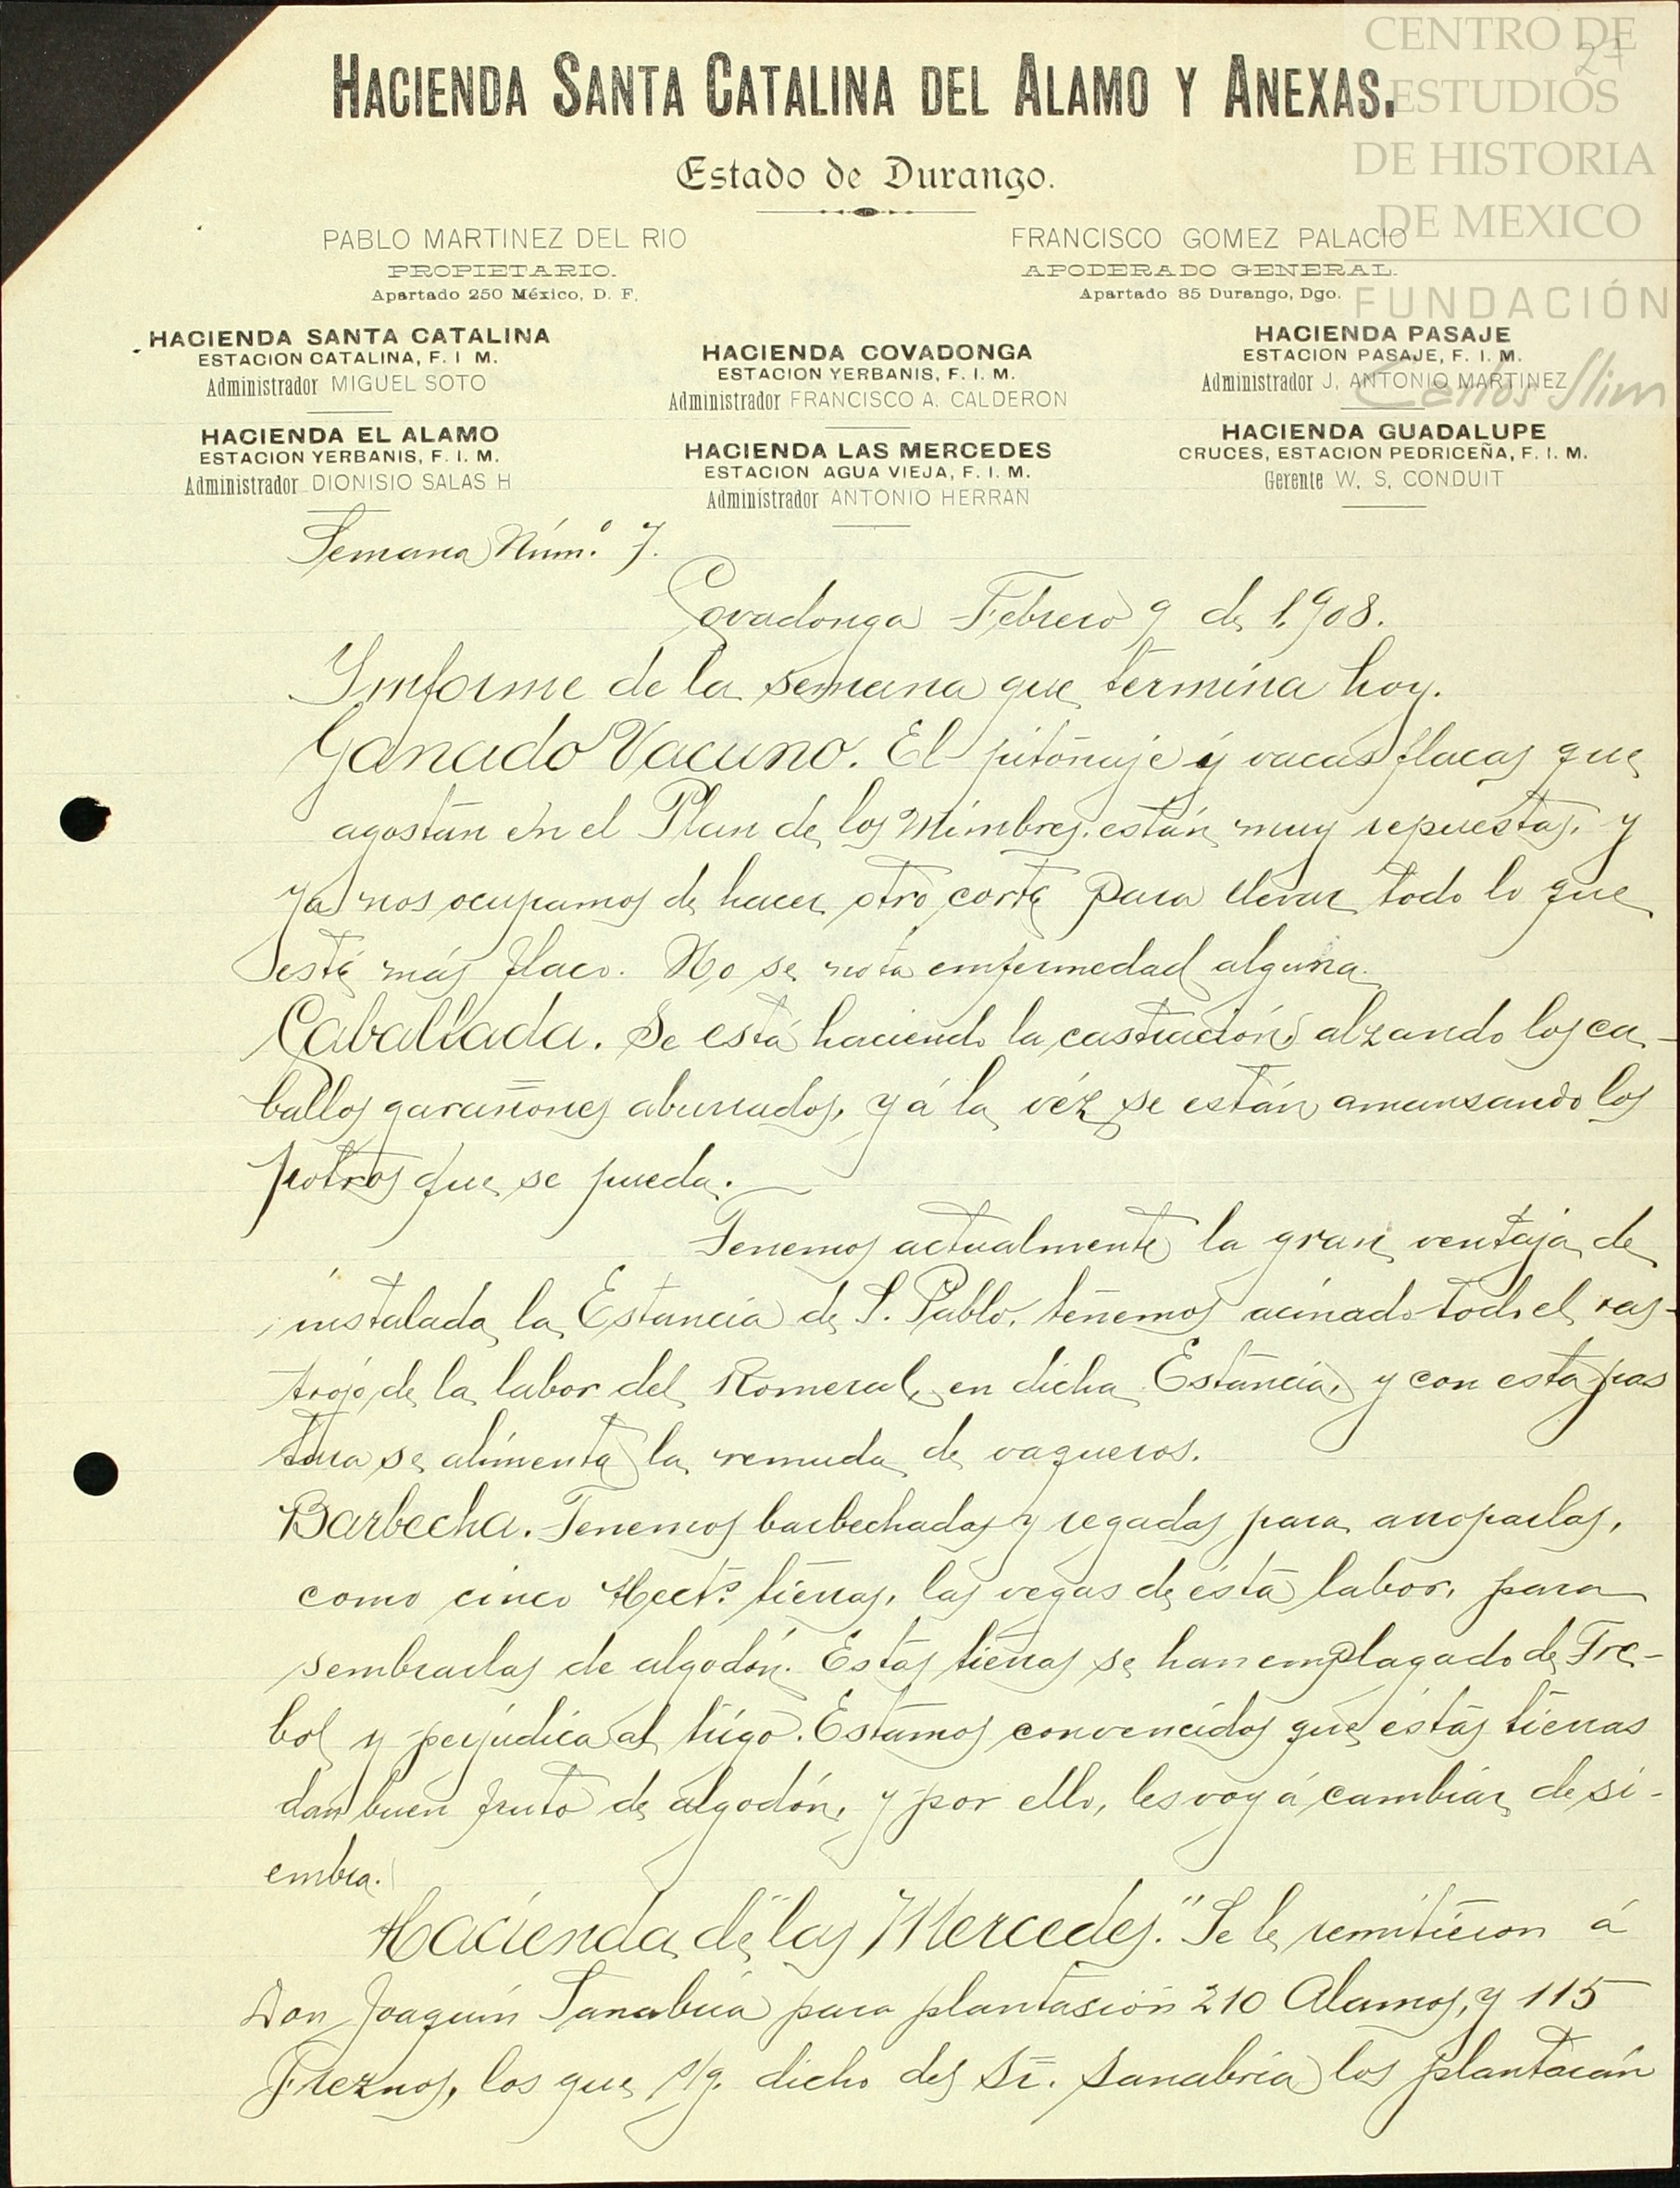 CENTRO DE
ESTUDIOS
DE HISTORIA
DE MEXICO
FUNDACIÓN
Carlos Slim
21
HACIENDA SANTA CATALINA DEL ALAMO Y ANEXAS.
Estado de Durango.
PABLO MARTINEZ DEL RIO
PROPIETARIO.
Apartado 250 México, D. F.
FRANCISCO GOMEZ PALACIO
APODERADO GENERAL.
Apartado 85 Durango, Dgo.
HACIENDA SANTA CATALINA
ESTACION CATALINA, F. I M.
Administrador MIGUEL SOTO
HACIENDA EL ALAMO
ESTACION YERBANIS, F. I. M.
Administrador DIONISIO SALAS H
HACIENDA COVADONGA
ESTACION YERBANIS, F. I. M.
Administrador FRANCISCO A. CALDERON
HACIENDA LAS MERCEDES
ESTACION AGUA VIEJA, F. I. M.
Administrador ANTONIO HERRAN
HACIENDA PASAJE
ESTACION PASAJE, F. I. M.
Administrador J. ANTONIO MARTINEZ
HACIENDA GUADALUPE
CRUCES, ESTACION PEDRICEÑA, F. I. M.
Gerente W. S. CONDUIT
Semana Núm.º 7.
Covadonga Febrero 9 de 1.908.
Ymforme de la semana que termina hoy.
Ganado Vacuno. El pitonaje y vacas flacas que
agostan en el Plan de los Mimbres. están muy repuestas, y
ya nos ocupamos de hacer otro corte para llevar todo lo que
esté más flaco. No se nota emfermedad alguna.
Caballada. Se está haciendo la castración, alzando los ca-
ballos garañones aburrados, y á la véz se están amansando los
potros que se pueda.
Tenemos actualmente la gran ventaja de
instalada la Estancia de S. Pablo. tenemos acinado todo el ras-
trojo de la labor del Romeral, en dicha Estancia, y con esta pas
tura se alimenta la remuda de vaqueros.
Barbecha. Tenemos barbechadas y regadas para arroparlas,
como cinco Hect.s tierras, las vegas de ésta labor, para
sembrarlas de algodón. Estas tierras se han emplagado de Tre-
bol y perjudica al trigo. Estamos convencidos que éstas tierras
dan buen fruto de algodón, y por ello, les voy á cambiar de si-
embra.
Hacienda de "las Mercedes." Se le remitieron á
Don Joaquín Sanabria para plantasión 210 Alamos, y 115
Freznos, los que s/g. dicho del Sr. Sanabria los plantarán